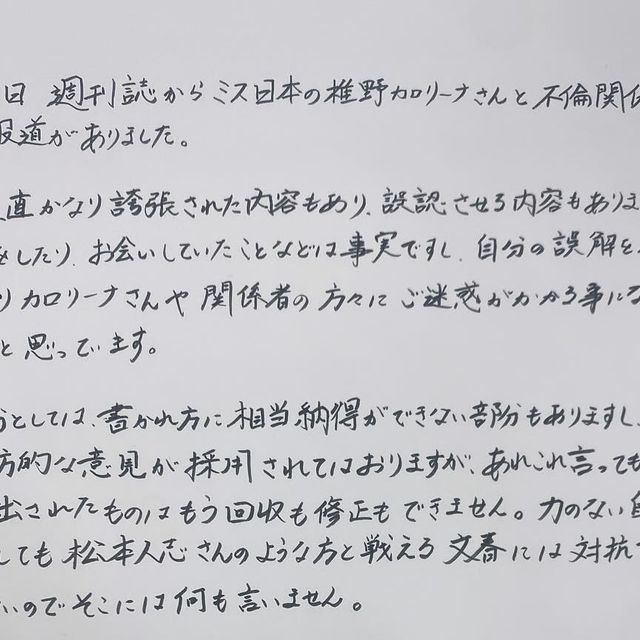 日 週刊誌からミス日本の椎野カロリーナさんと不倫関係
報道がありました。
直かなり誇張された内容もあり、誤認させる内容もありま
したり、お会いしていたことなどは事実ですし、自分の誤解を
りカロリーナさんや関係者の方々にご迷惑がかかる事にな
と思っています。
としては、書かれ方に相当納得ができない部分もありますし、
方的な意見が採用されてはおりますが、あれこれ言っても
出されたものはもう回収も修正もできません。力のない自
しても松本人志さんのような方と戦える文春には対抗
いのでそこには何も言いません。